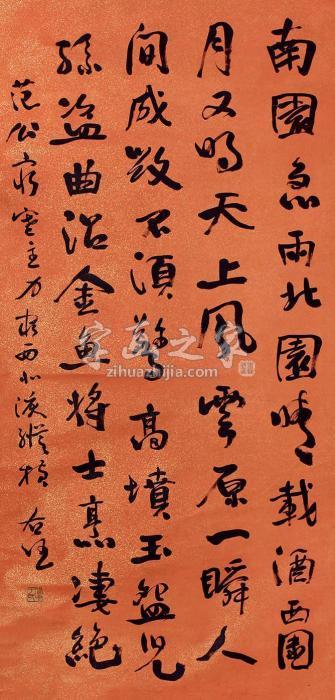 南園急雨北園晴載酒西園
月又明天上風雲原一瞬人
間成敗不須驚高墳玉盌兒
孫盗曲沼金魚將士烹淒絶
范公窮塞主力西北淚縱横 右任
字画之家
zihuazhijia.com